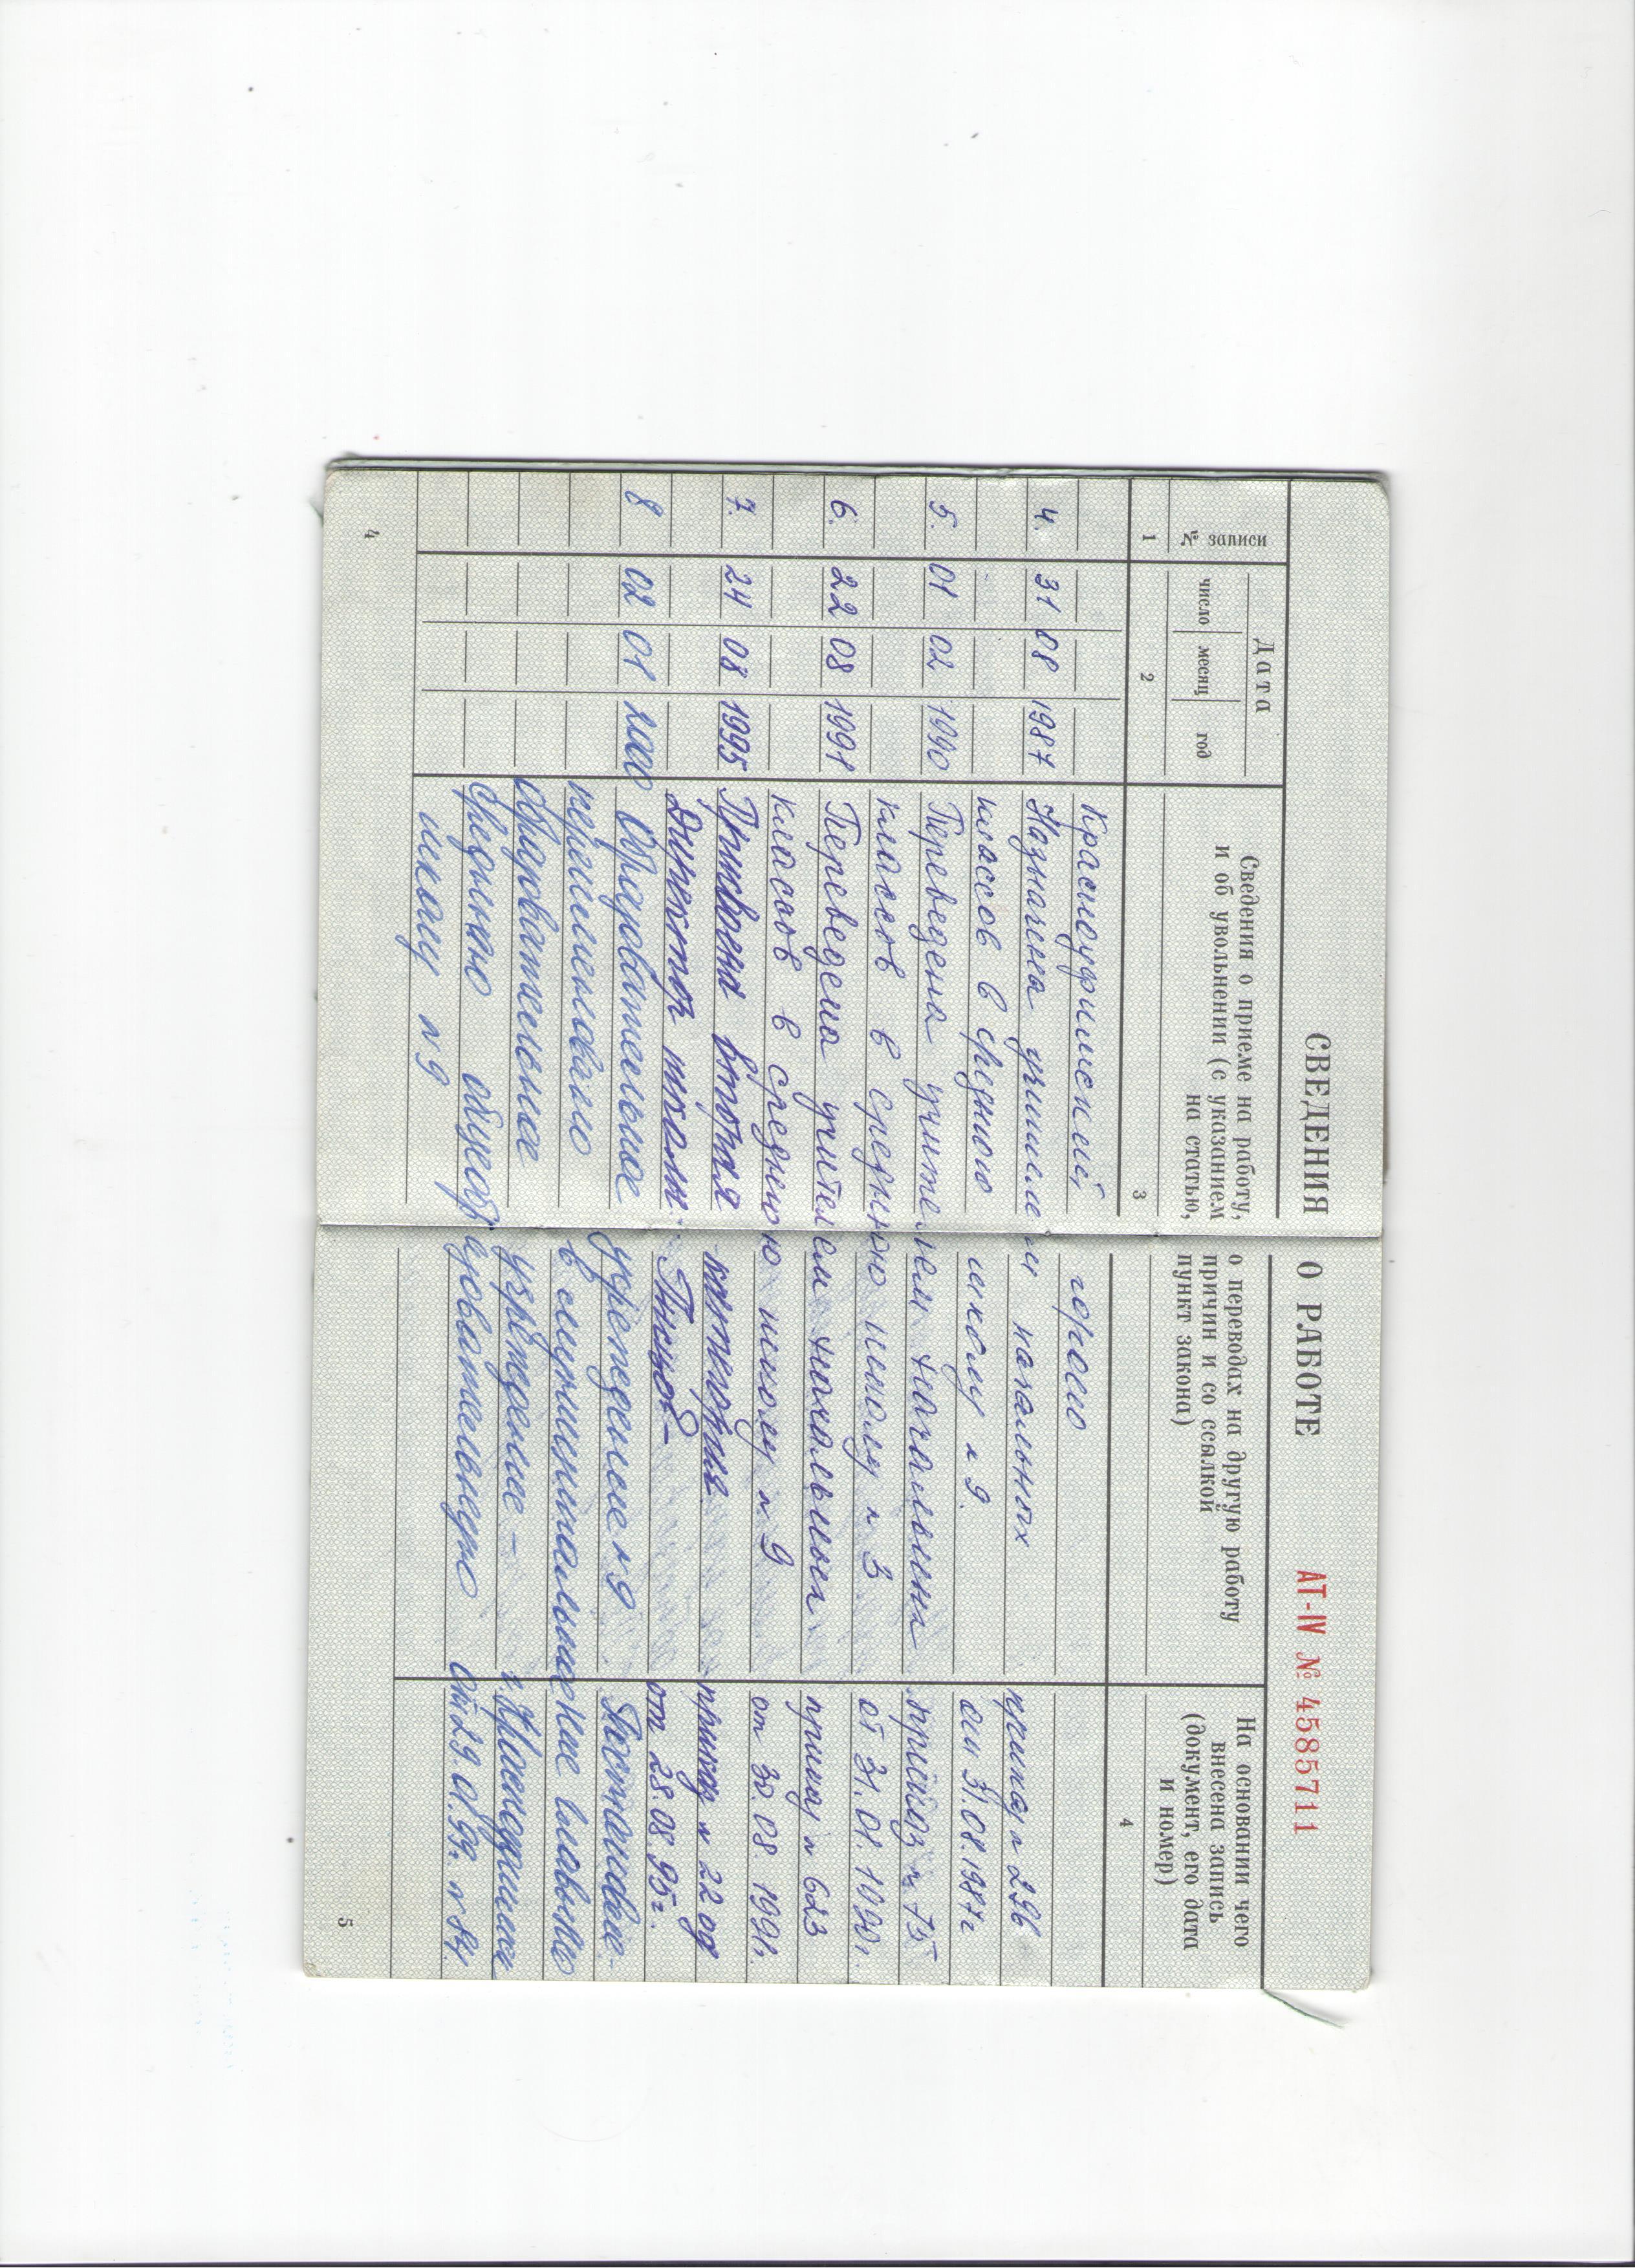 СВЕДЕНИЯ О РАБОТЕ АТ-IV № 4585711
№ записи
Дата
число месяц год
Сведения о приеме на работу, о переводах на другую работу
и об увольнении (с указанием причин и со ссылкой
на статью, пункт закона)
На основании чего
внесена запись
(документ, его дата
и номер)
1 2 3 4
Красноуфимский гороно
4. 31 08 1987 Назначена учителем начальных приказ № 296
классов в среднюю школу № 9. от 31.08.1987 г
5. 01 02 1990 Переведена учителем начальных приказ № 75
классов в среднюю школу № 3 от 31.01.1990 г.
6. 22 08 1991 Переведена учителем начальных приказ № 623
классов в среднюю школу № 9 от 30.08.1991 г.
7. 24 08 1995 Присвоена вторая категория приказ № 22 од
Директор школы: от 28.08.95 г.
8 02 01 2000 Образовательное учреждение № 9 Постановле-
переименовано в муниципальное ние главы МО
образовательное учреждение - г. Красноуфимск
среднюю общеобразовательную от 29.01.99г. №
школу № 9
4 5